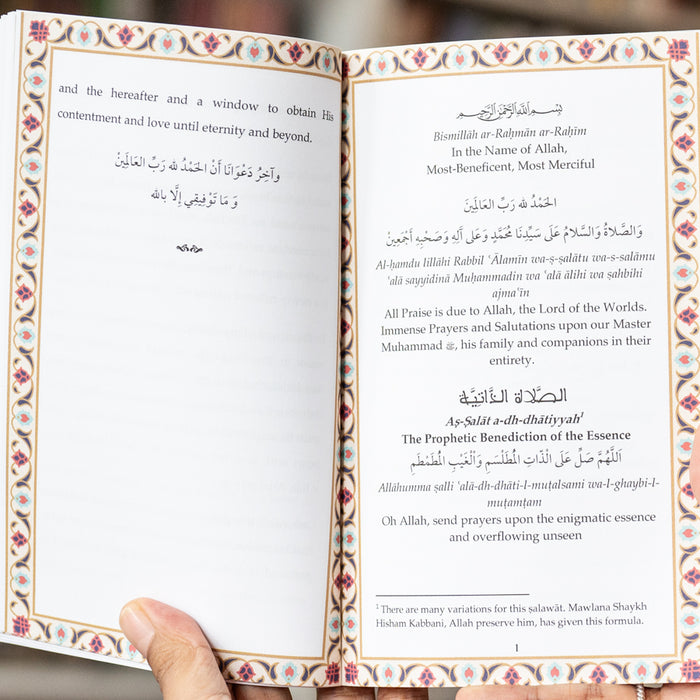 and the hereafter and a window to obtain His
contentment and love until eternity and beyond.
وآخِرُ دَعْوَانَا أَنْ الحَمْدُ لله رَبِّ العَالَمِيْنْ
وَ مَا تَوْفِيقِي إِلَّا بالله
بِسْمِ اللهِ الرَّحْمٰنِ الرَّحِيْمِ
Bismillāh ar-Raḥmān ar-Raḥīm
In the Name of Allah,
Most-Beneficent, Most Merciful
الحَمْدُ لله رَبِّ العَالَمِيَنَ
وَالصَّلَاةُ وَالسَّلَامُ عَلَى سَيِّدِنَا مُحَمَّدٍ وَعَلَى آلِهِ وَصَحْبِهِ أَجْمَعِيْنْ
Al-ḥamdu lillāhi Rabbil ʿĀlamīn wa-ṣ-ṣalātu wa-s-salāmu
ʿalā sayyidinā Muḥammadin wa ʿalā ālihi wa ṣahbihi
ajmaʿīn
All Praise is due to Allah, the Lord of the Worlds.
Immense Prayers and Salutations upon our Master
Muhammad ﷺ, his family and companions in their
entirety.
الصَّلَاةُ الذَّاتِيَّة
Aṣ-Ṣalāt a-dh-dhātiyyah¹
The Prophetic Benediction of the Essence
اَللَّهُمَّ صَلِّ عَلَى الْذَّاتِ المُطَلْسَمِ وَالْغَيْبِ المُطَمْطَمِ
Allāhumma ṣalli ʿalā-dh-dhāti-l-muṭalsami wa-l-ghaybi-l-
muṭamṭam
Oh Allah, send prayers upon the enigmatic essence
and overflowing unseen
¹ There are many variations for this ṣalawāt. Mawlana Shaykh
Hisham Kabbani, Allah preserve him, has given this formula.
1